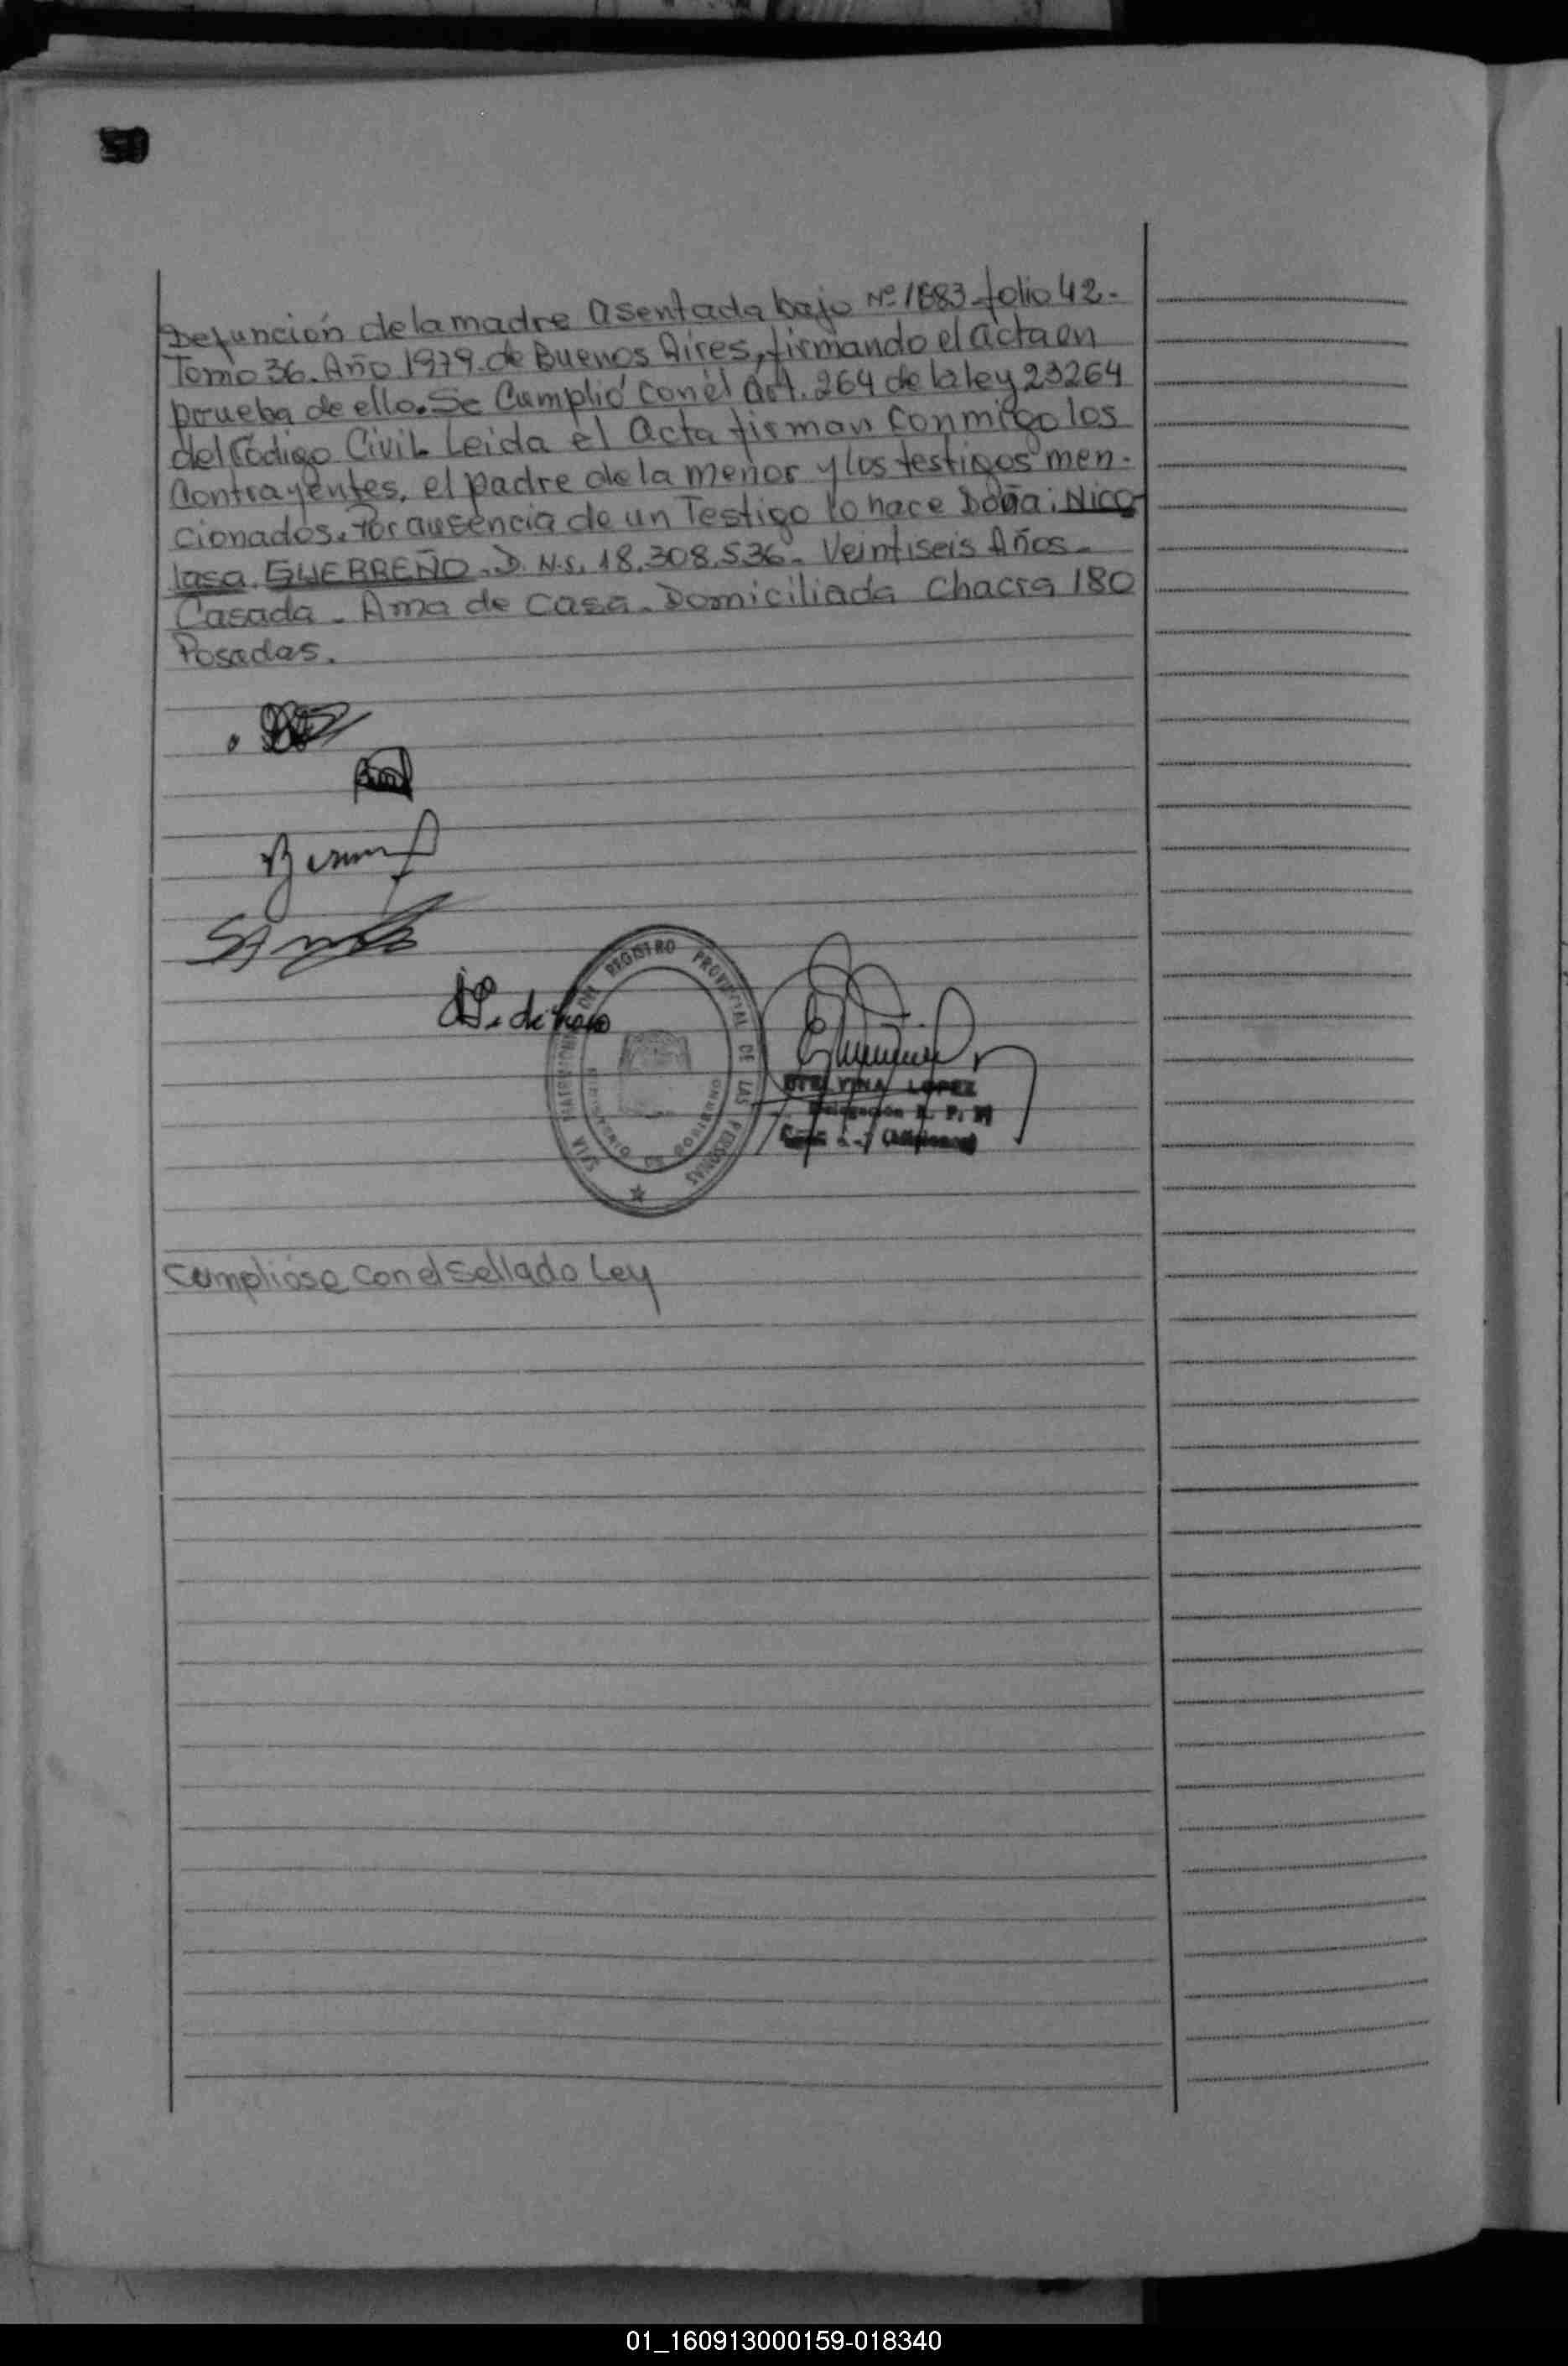 50
Defunción de la madre asentada bajo Nº 1883 folio 42-
Tomo 36. Año 1979. de Buenos Aires, firmando el acta en
prueba de ello. Se Cumplió con el Art. 264 de la ley 23264
del Código Civil. Leida el acta firman conmigo los
Contrayentes, el padre de la menor y los testigos men-
cionados. Por ausencia de un Testigo lo hace Doña: Nico-
lasa. GUERREÑO. D. N. I. 18.308.536. Veintiseis Años.
Casada. Ama de Casa. Domiciliada Chacra 180
Posadas.
REGISTRO PROVINCIAL DE LAS PERSONAS
MINISTERIO DE GOBIERNO
LOPEZ
Delegación R. P. P.
Cumplióse con el Sellado Ley
01_160913000159-018340